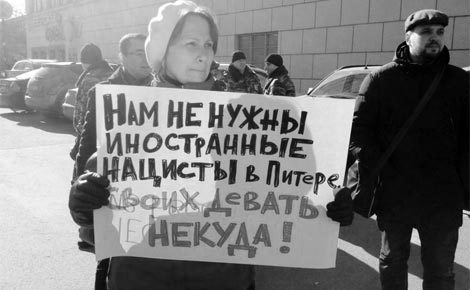 НАМ НЕ НУЖНЫ
ИНОСТРАННЫЕ
НАЦИСТЫ В ПИТЕРЕ,
СВОИХ ДЕВАТЬ
НЕКУДА!